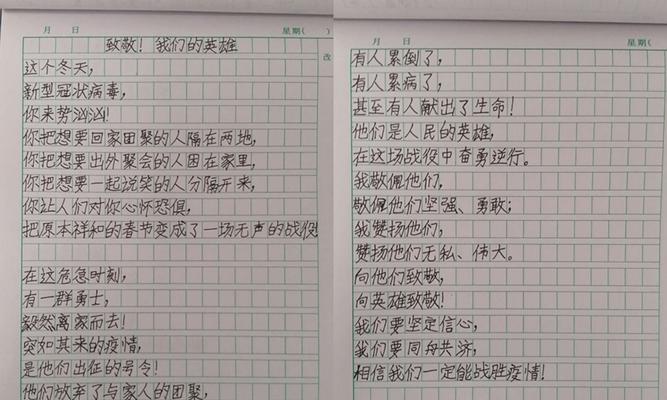 月 日 星期( )
致敬！我们的英雄
改
这个冬天，
新型冠状病毒，
你来势汹汹！
你把想要回家团聚的人隔在两地，
你把想要出外聚会的人困在家里，
你把想要一起说笑的人分隔开来，
你让人们对你心怀恐惧，
把原本祥和的春节变成了一场无声的战役
在这危急时刻，
有一群勇士，
毅然离家而去！
突如其来的疫情，
是他们出征的号令！
他们放弃了与家人的团聚，
月 日 星期(
有人累倒了，
有人累病了，
甚至有人献出了生命！
他们是人民的英雄，
在这场战役中奋勇逆行。
我敬佩他们，
敬佩他们坚强、勇敢；
我赞扬他们，
赞扬他们无私、伟大。
向他们致敬，
向英雄致敬！
我们要坚定信心，
我们要同舟共济，
相信我们一定能战胜疫情！